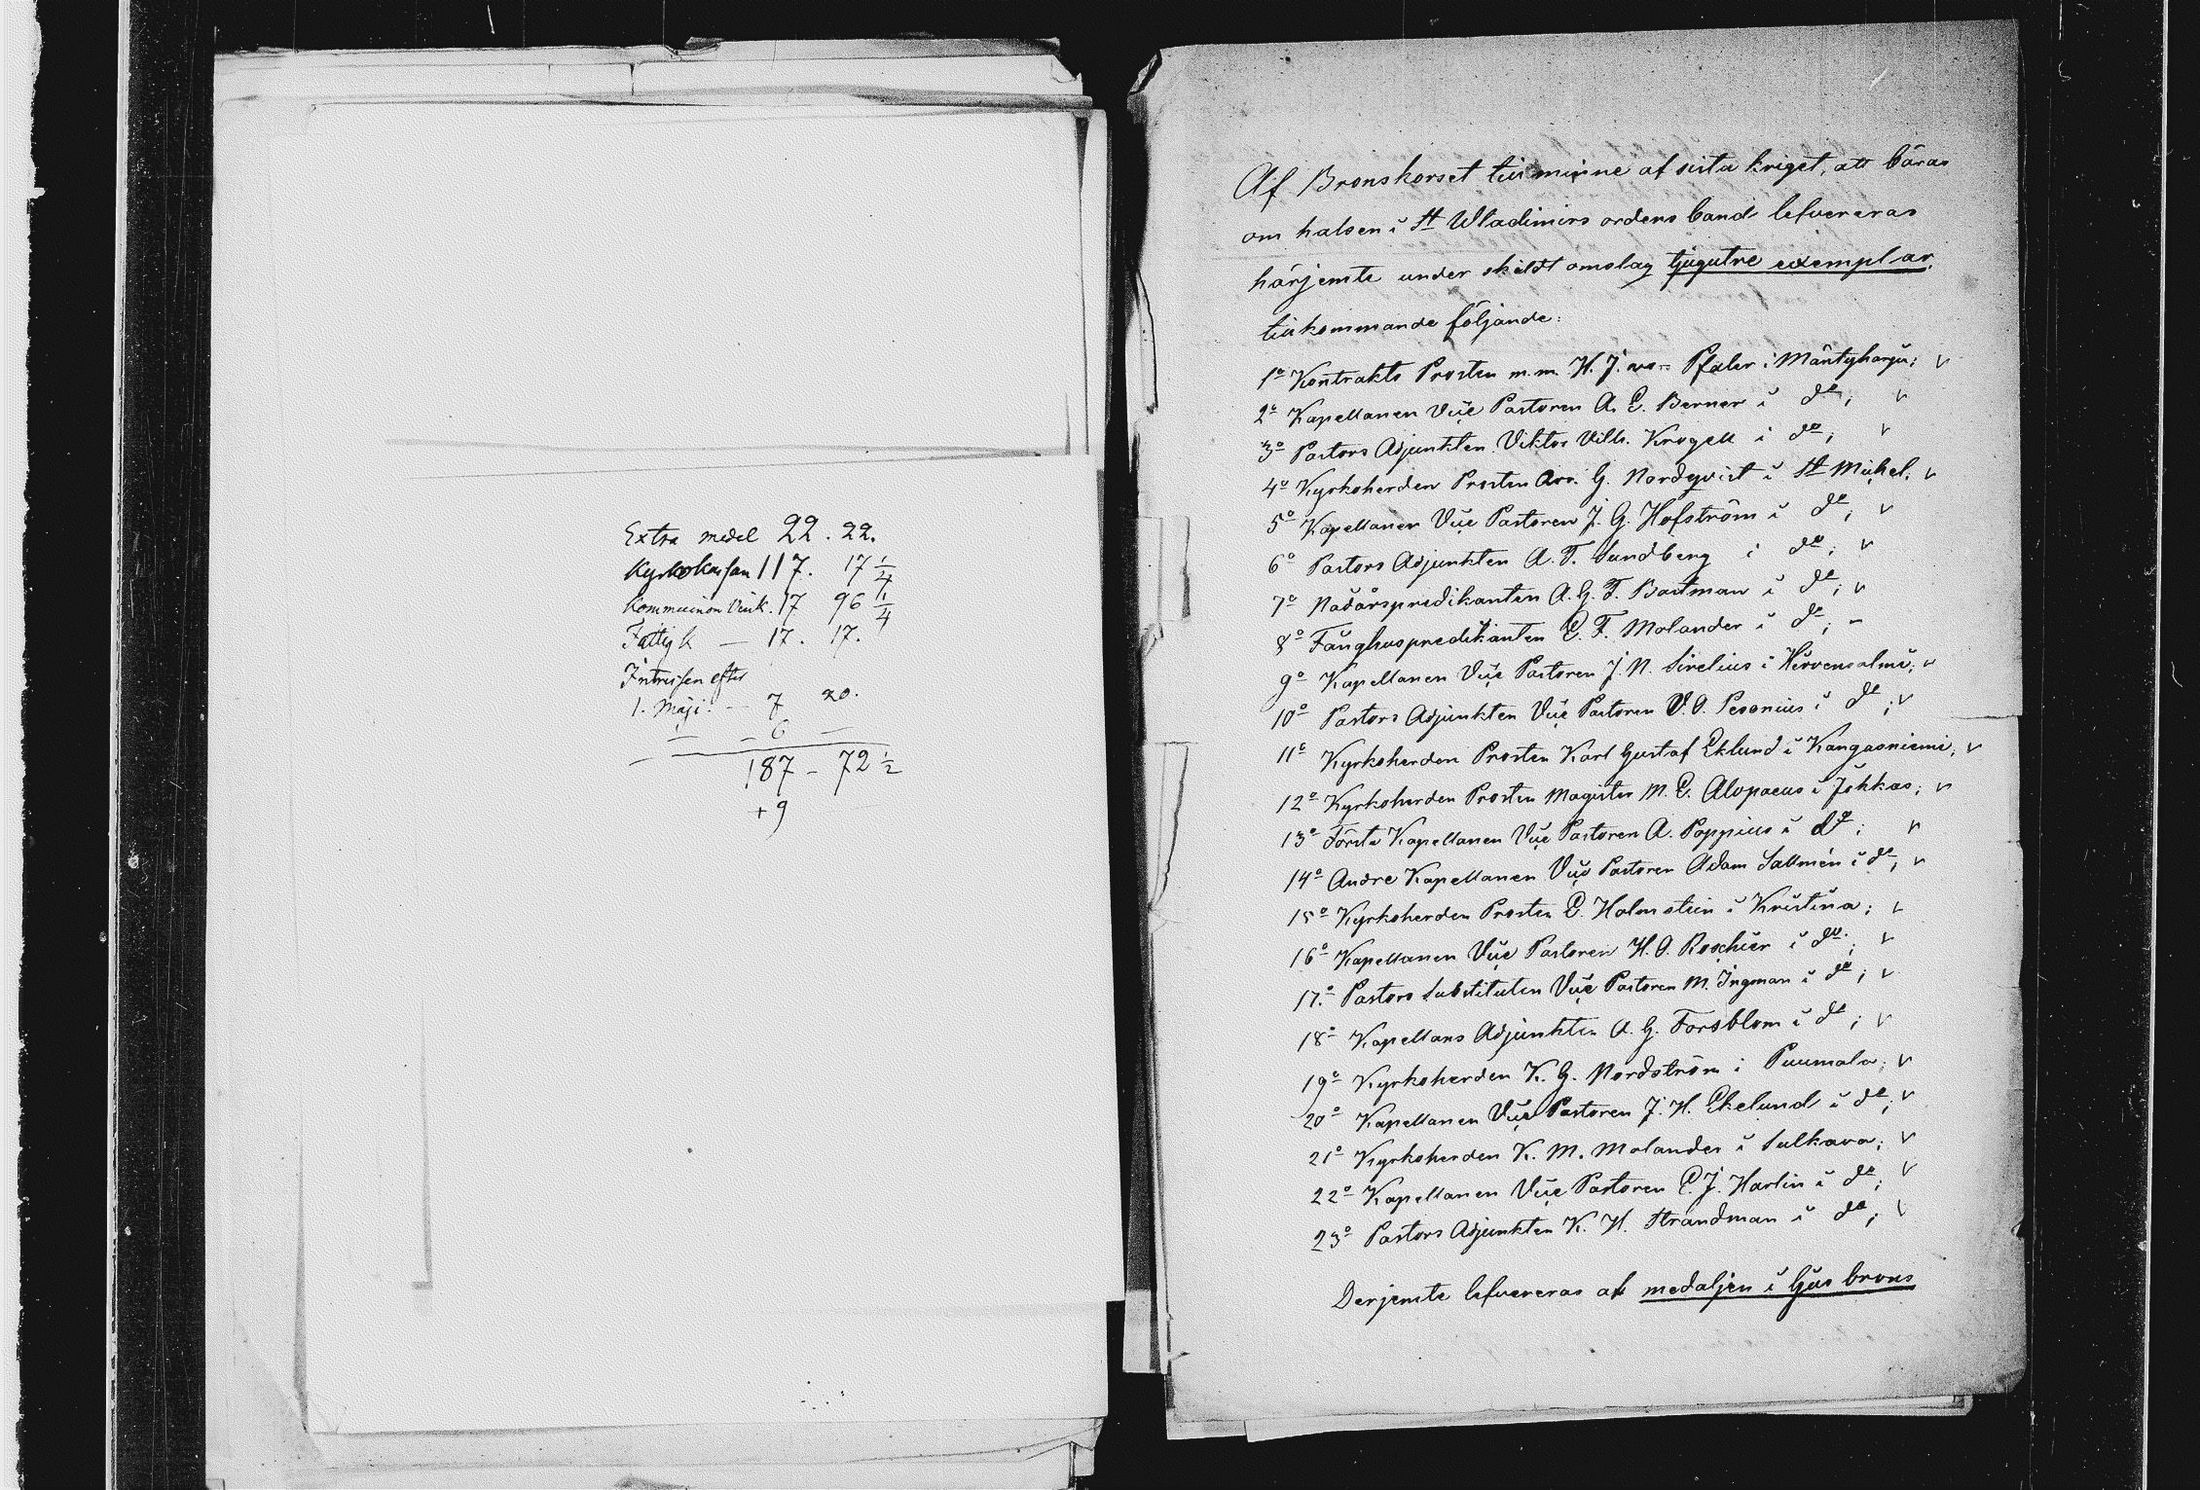 Extra medel 22. 22.
Kyrkokassan 117. 17 1/4
Kommunion Vink. 17 96 1/4
Fattig k — 17. 17.
Intressen efter
1. Maji. — 7 20.
— — 6 —
187 — 72 1/2
+ 9
Af Bronskorset till minne af sista kriget, att bäras
om halsen i St Wladimirs ordens band lefvereras
härjemte under skildt omslag tjugutre exemplar,
tillkommande följande:
1o Kontrakts Prosten m.m. H. J. von Pfaler i Mäntyharju; v
2o Kapellanen Vice Pastoren A. E. Berner i do; v
3o Pastors Adjunkten Viktor Vilh. Krogell i do; v
4o Kyrkoherden Prosten Ass. G. Nordqvist i St Michel; v
5o Kapellanen Vice Pastoren J. G. Hofström i do; v
6o Pastors Adjunkten A. T. Sundberg i do; v
7o Nådårspredikanten A. G. T. Bastman i do; v
8o Fånghuspredikanten E. F. Molander i do; –
9o Kapellanen Vice Pastoren J. N. Sirelius i Hirvensalmi; v
10o Pastors Adjunkten Vice Pastoren V. O. Pesonius i do; v
11o Kyrkoherden Prosten Karl Gustaf Eklund i Kangasniemi; v
12o Kyrkoherden Prosten Magister M. E. Alopaeus i Jokkas; v
13o Första Kapellanen Vice Pastoren A. Poppius i do; v
14o Andre Kapellanen Vice Pastoren Adam Sallmén i do; v
15o Kyrkoherden Prosten E. Holmstein i Kristina; v
16o Kapellanen Vice Pastoren H. O. Roschier i do; v
17o Pastors Substituten Vice Pastoren M. Ingman i do; v
18o Kapellans Adjunkten A. G. Forsblom i do; v
19o Kyrkoherden K. G. Nordström i Puumala; v
20o Kapellanen Vice Pastoren J. H. Ekelund i do; v
21o Kyrkoherden K. M. Molander i Sulkava; v
22o Kapellanen Vice Pastoren E. J. Harlin i do; v
23o Pastors Adjunkten K. H. Strandman i do; v
Derjemte lefvereras af medaljen i ljus brons